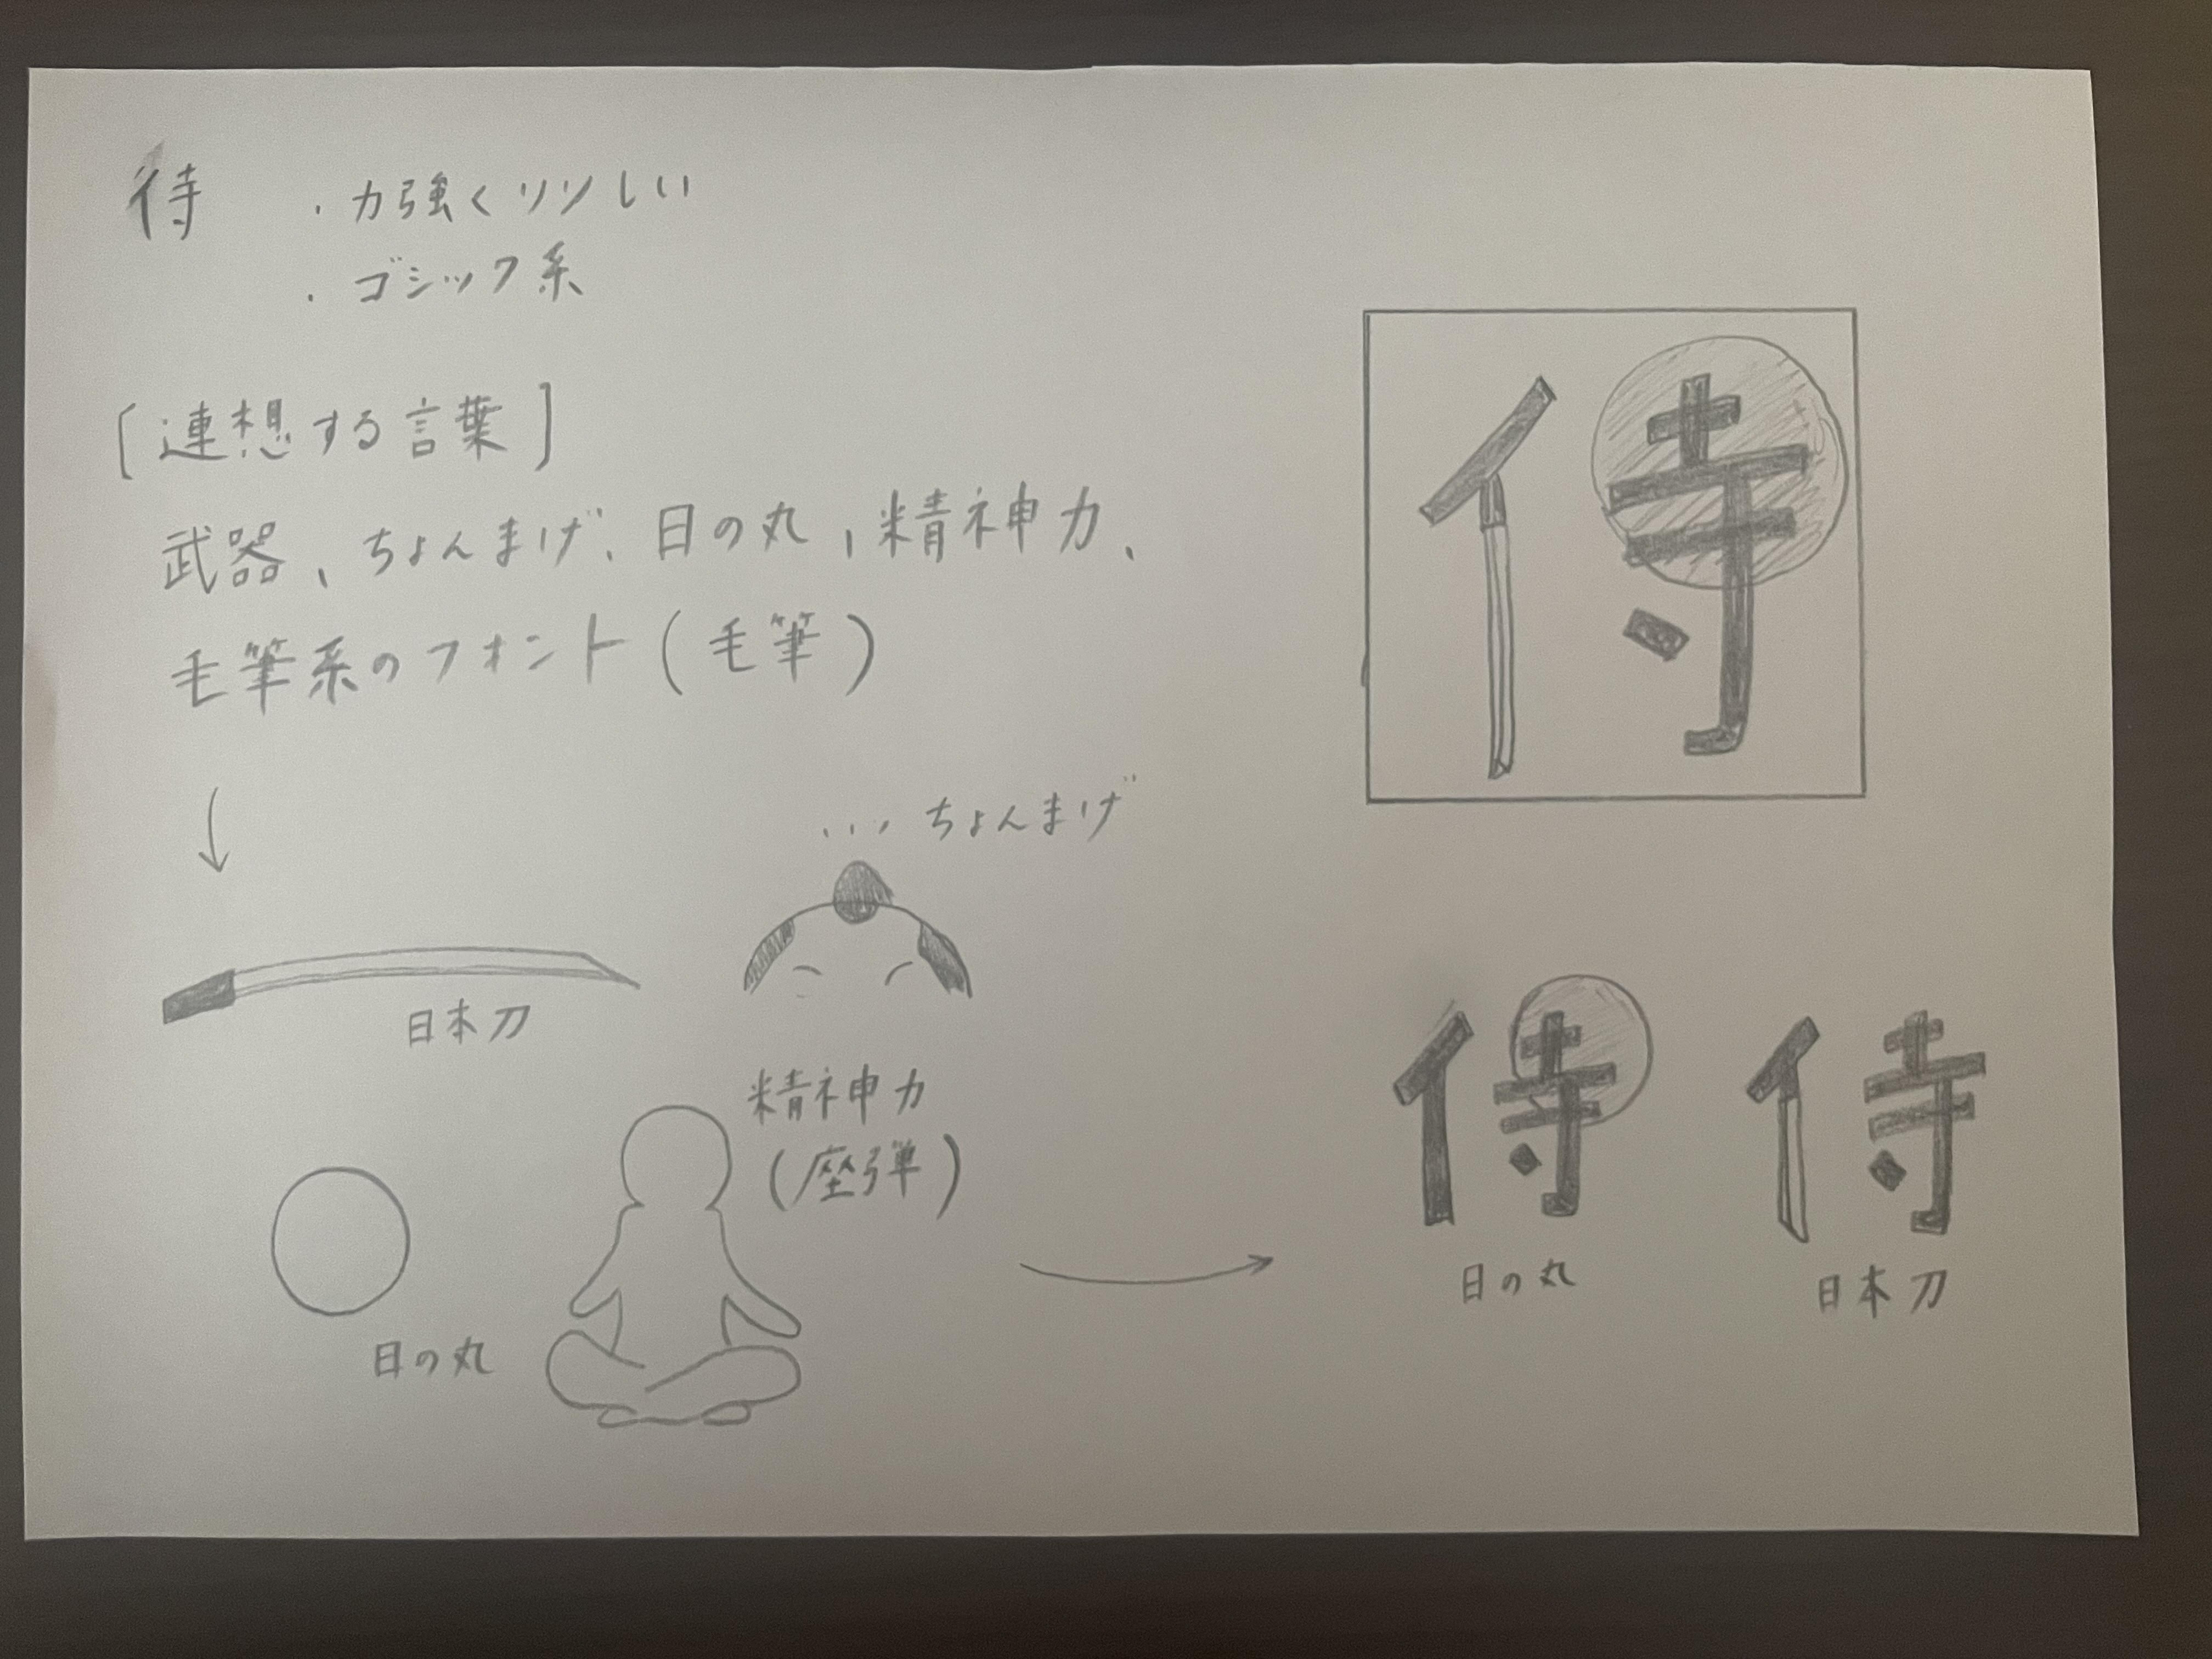 侍
・力強くリンしい
・ゴシック系
[連想する言葉]
武器、ちょんまげ、日の丸、精神力、
毛筆系のフォント(毛筆)
... ちょんまげ
日本刀
精神力
(座弾)
日の丸
侍
侍
侍
日の丸
日本刀